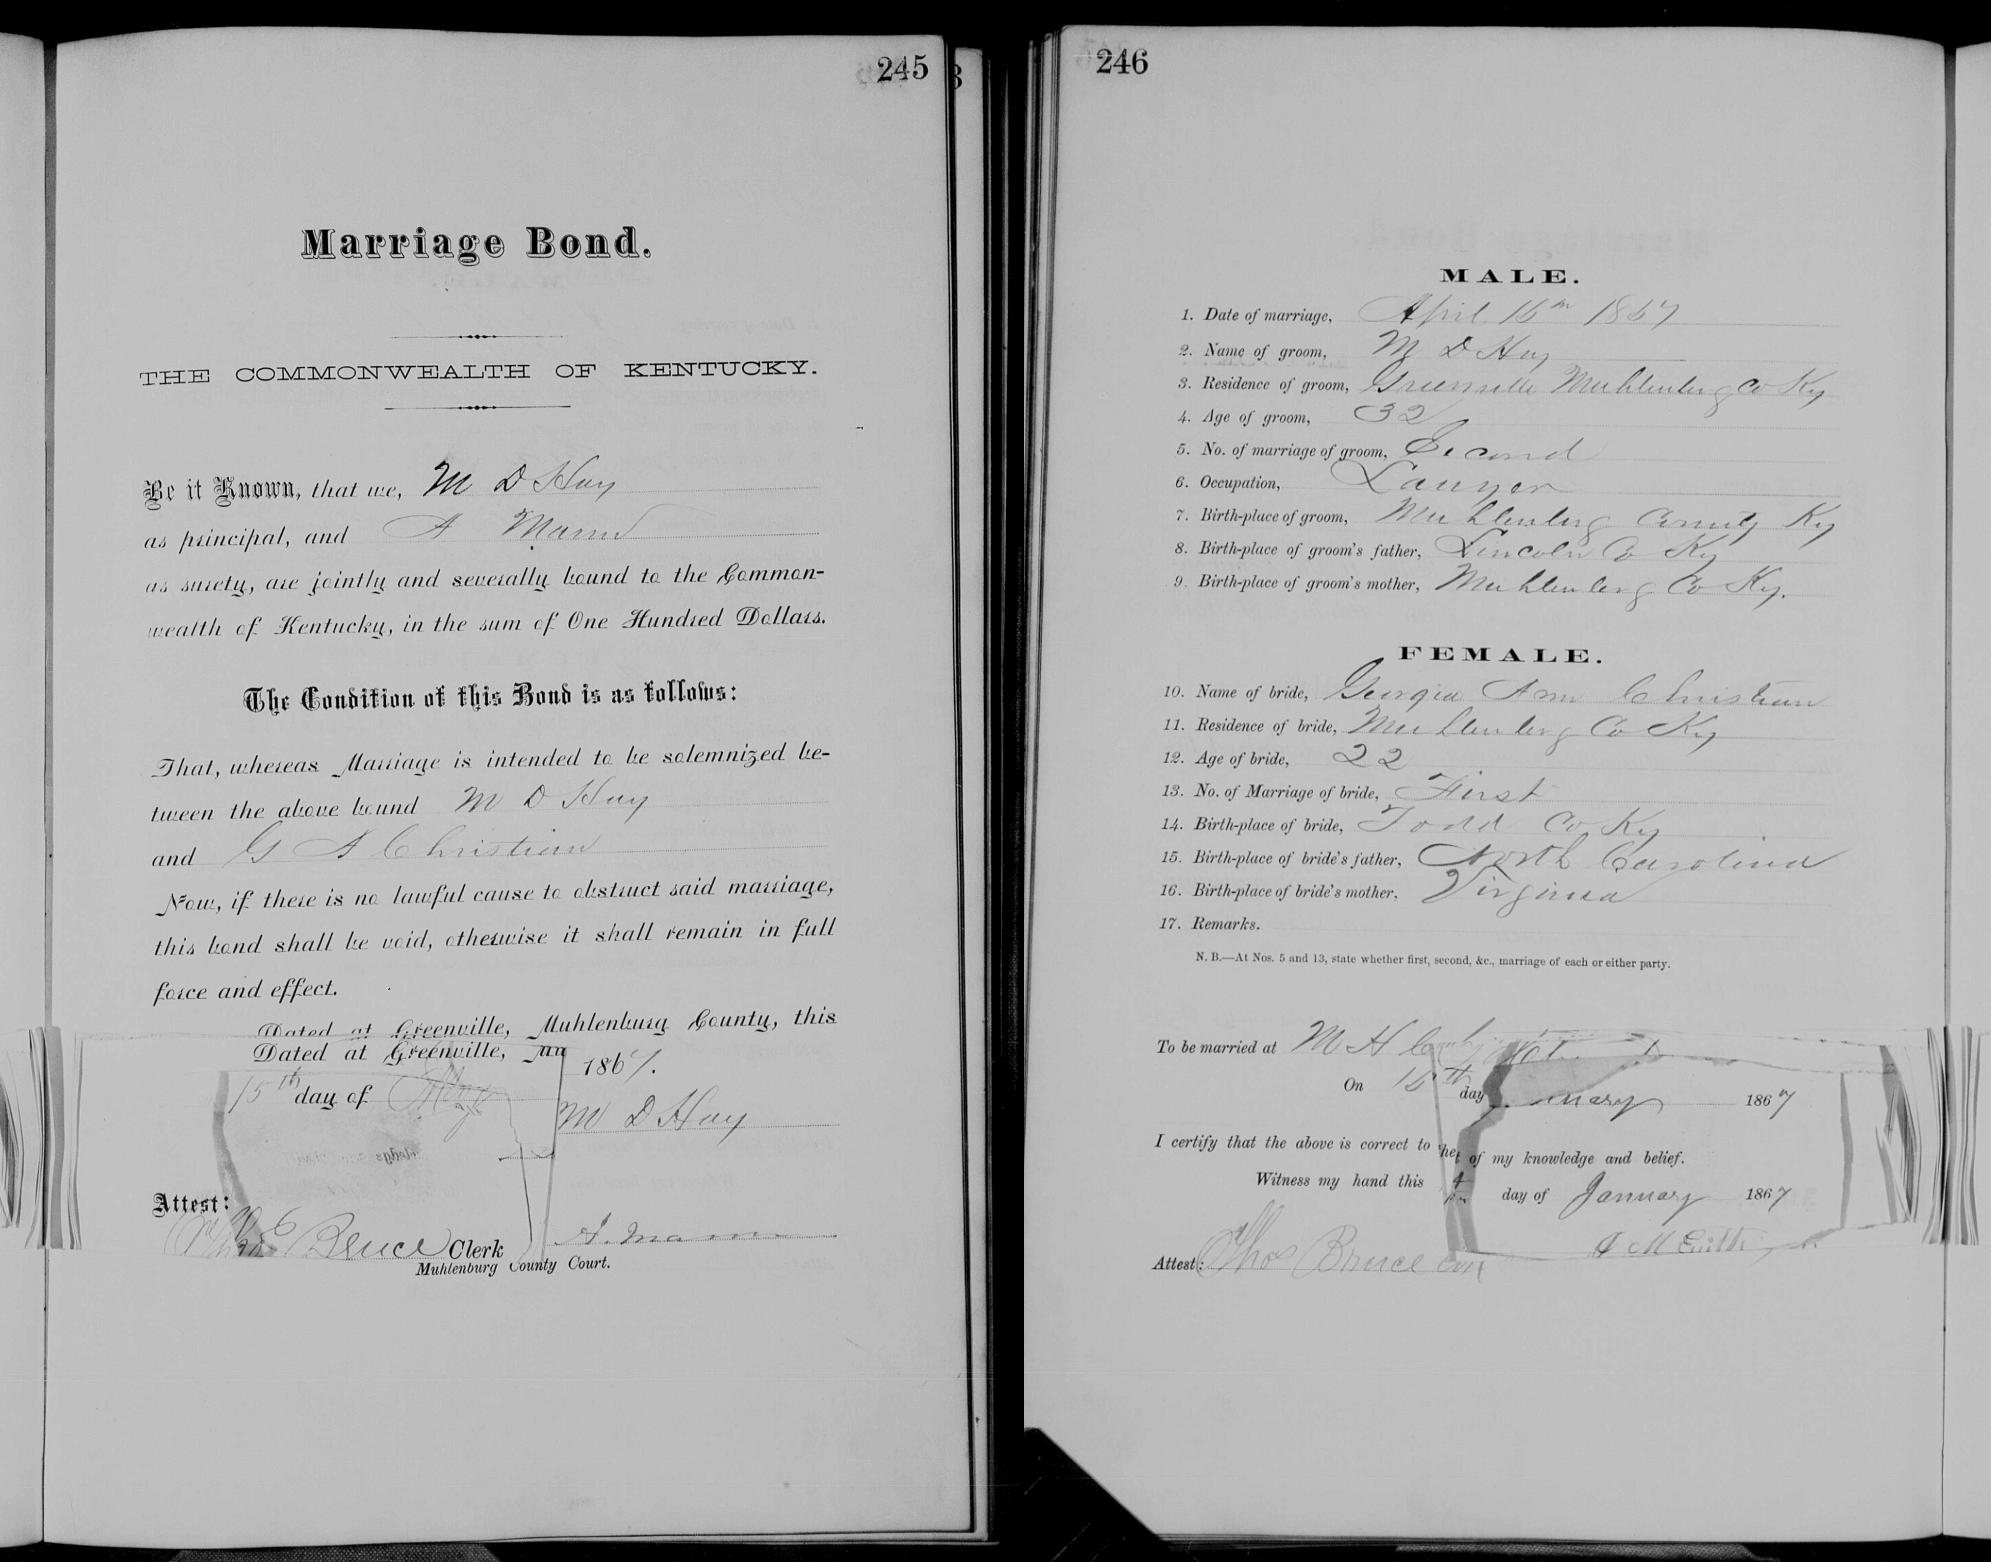 245
Marriage Bond.
THE COMMONWEALTH OF KENTUCKY.
Be it Known, that we, M D Hay
as principal, and A Mann
as surety, are jointly and severally bound to the Common-
wealth of Kentucky, in the sum of One Hundred Dollars.
The Condition of this Bond is as follows:
That, whereas Marriage is intended to be solemnized be-
tween the above bound M D Hay
and G A Christian
Now, if there is no lawful cause to obstruct said marriage,
this bond shall be void, otherwise it shall remain in full
force and effect.
Dated at Greenville, Muhlenburg County, this
Dated at Greenville,
15th day of 1867.
M D Hay
Attest:
Bruce Clerk A. Mann
Muhlenburg County Court.
246
MALE.
1. Date of marriage, April 16th 1867
2. Name of groom, M D Hay
3. Residence of groom, Greenville Muhlenberg Co Ky
4. Age of groom, 32
5. No. of marriage of groom, Second
6. Occupation, Lawyer
7. Birth-place of groom, Muhlenberg County Ky
8. Birth-place of groom's father, Lincoln Co Ky
9. Birth-place of groom's mother, Muhlenberg Co Ky.
FEMALE.
10. Name of bride, Georgia Ann Christian
11. Residence of bride, Muhlenberg Co Ky
12. Age of bride, 22
13. No. of Marriage of bride, First
14. Birth-place of bride, Todd Co Ky
15. Birth-place of bride's father, North Carolina
16. Birth-place of bride's mother, Virginia
17. Remarks.
N. B.—At Nos. 5 and 13, state whether first, second, &c., marriage of each or either party.
To be married at M H
On 16th day nuary 1867
I certify that the above is correct to the of my knowledge and belief.
Witness my hand this day of January 1867
Attest: Thos Bruce